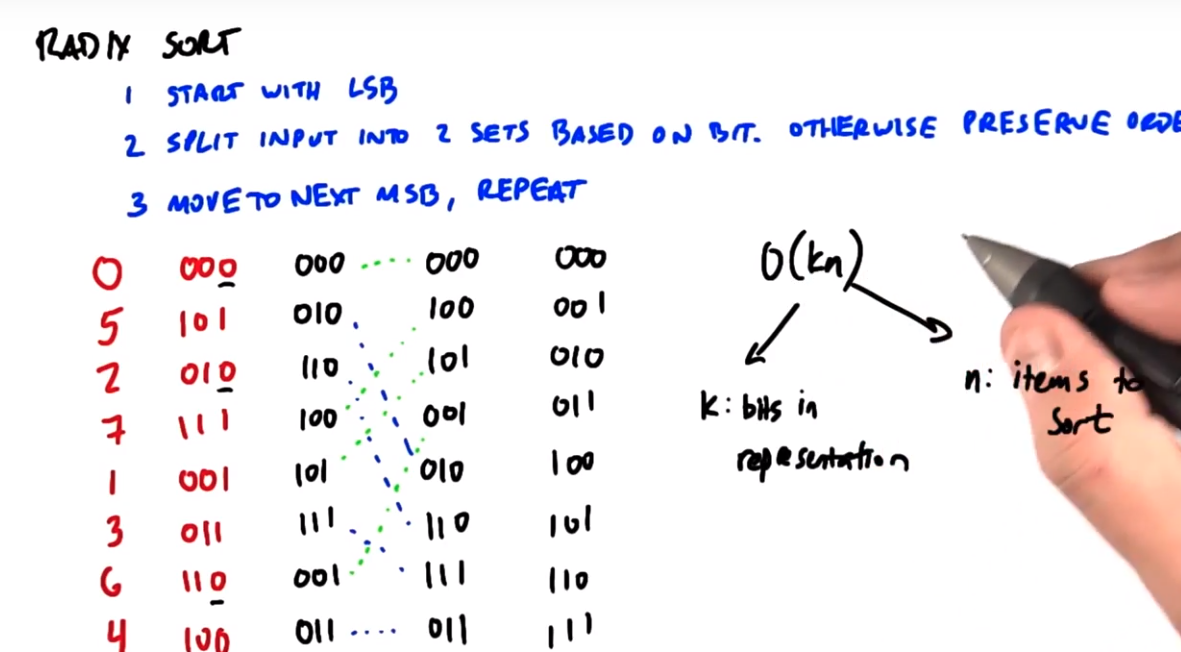 RADIX SORT
1 START WITH LSB
2 SPLIT INPUT INTO 2 SETS BASED ON BIT. OTHERWISE PRESERVE ORDE
3 MOVE TO NEXT MSB, REPEAT
0 000 000 000 000
5 101 010 100 001
2 010 110 101 010
7 111 100 001 011
1 001 101 010 100
3 011 111 110 101
6 110 001 111 110
4 100 011 011 111
O(kn)
k: bits in
representation
n: items to
sort